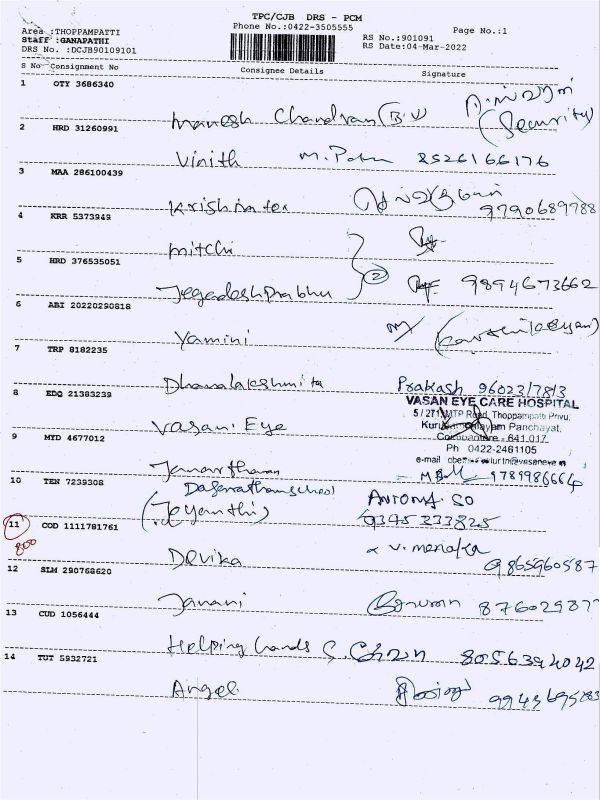 TPC/CJB DRS - PCM
Phone No.:0422-3505555
Area :THOPPAMPATTI
Staff :GANAPATHI
DRS No. :DCJB90109101
RS No.:901091
RS Date:04-Mar-2022
Page No.:1
S No Consignment No Consignee Details Signature
1 OTY 3686340
Manesh Chandran (B.V) (Security)
2 HRD 31260991
Vinith 8526166176
3 MAA 286100439
Krishna tex 9790689788
4 KRR 5373949
Mitchi
5 HRD 376535051
Jegadeshprabhu 2 9894673662
6 ABI 20220290818
Yamini
7 TRP 8182235
Dhanalakshmi Prakash 9602317813
8 EDQ 21383239
Vasan Eye
VASAN EYE CARE HOSPITAL
5 / 271, MTP Road, Thoppampatti Pirivu,
Panchayat,
Coimbatore - 641 017
Ph 0422-2461105
e-mail
9 MYD 4677012
Janarthanan 9789986664
10 TEN 7239308
(Jeyanthi) 9345333825
11 COD 1111781761
800
Devika V. Menaka 9865960587
12 SLM 290768620
Janani 876029877
13 CUD 1056444
Helping hands 8056394042
14 TUT 5932721
Angel 9943695783